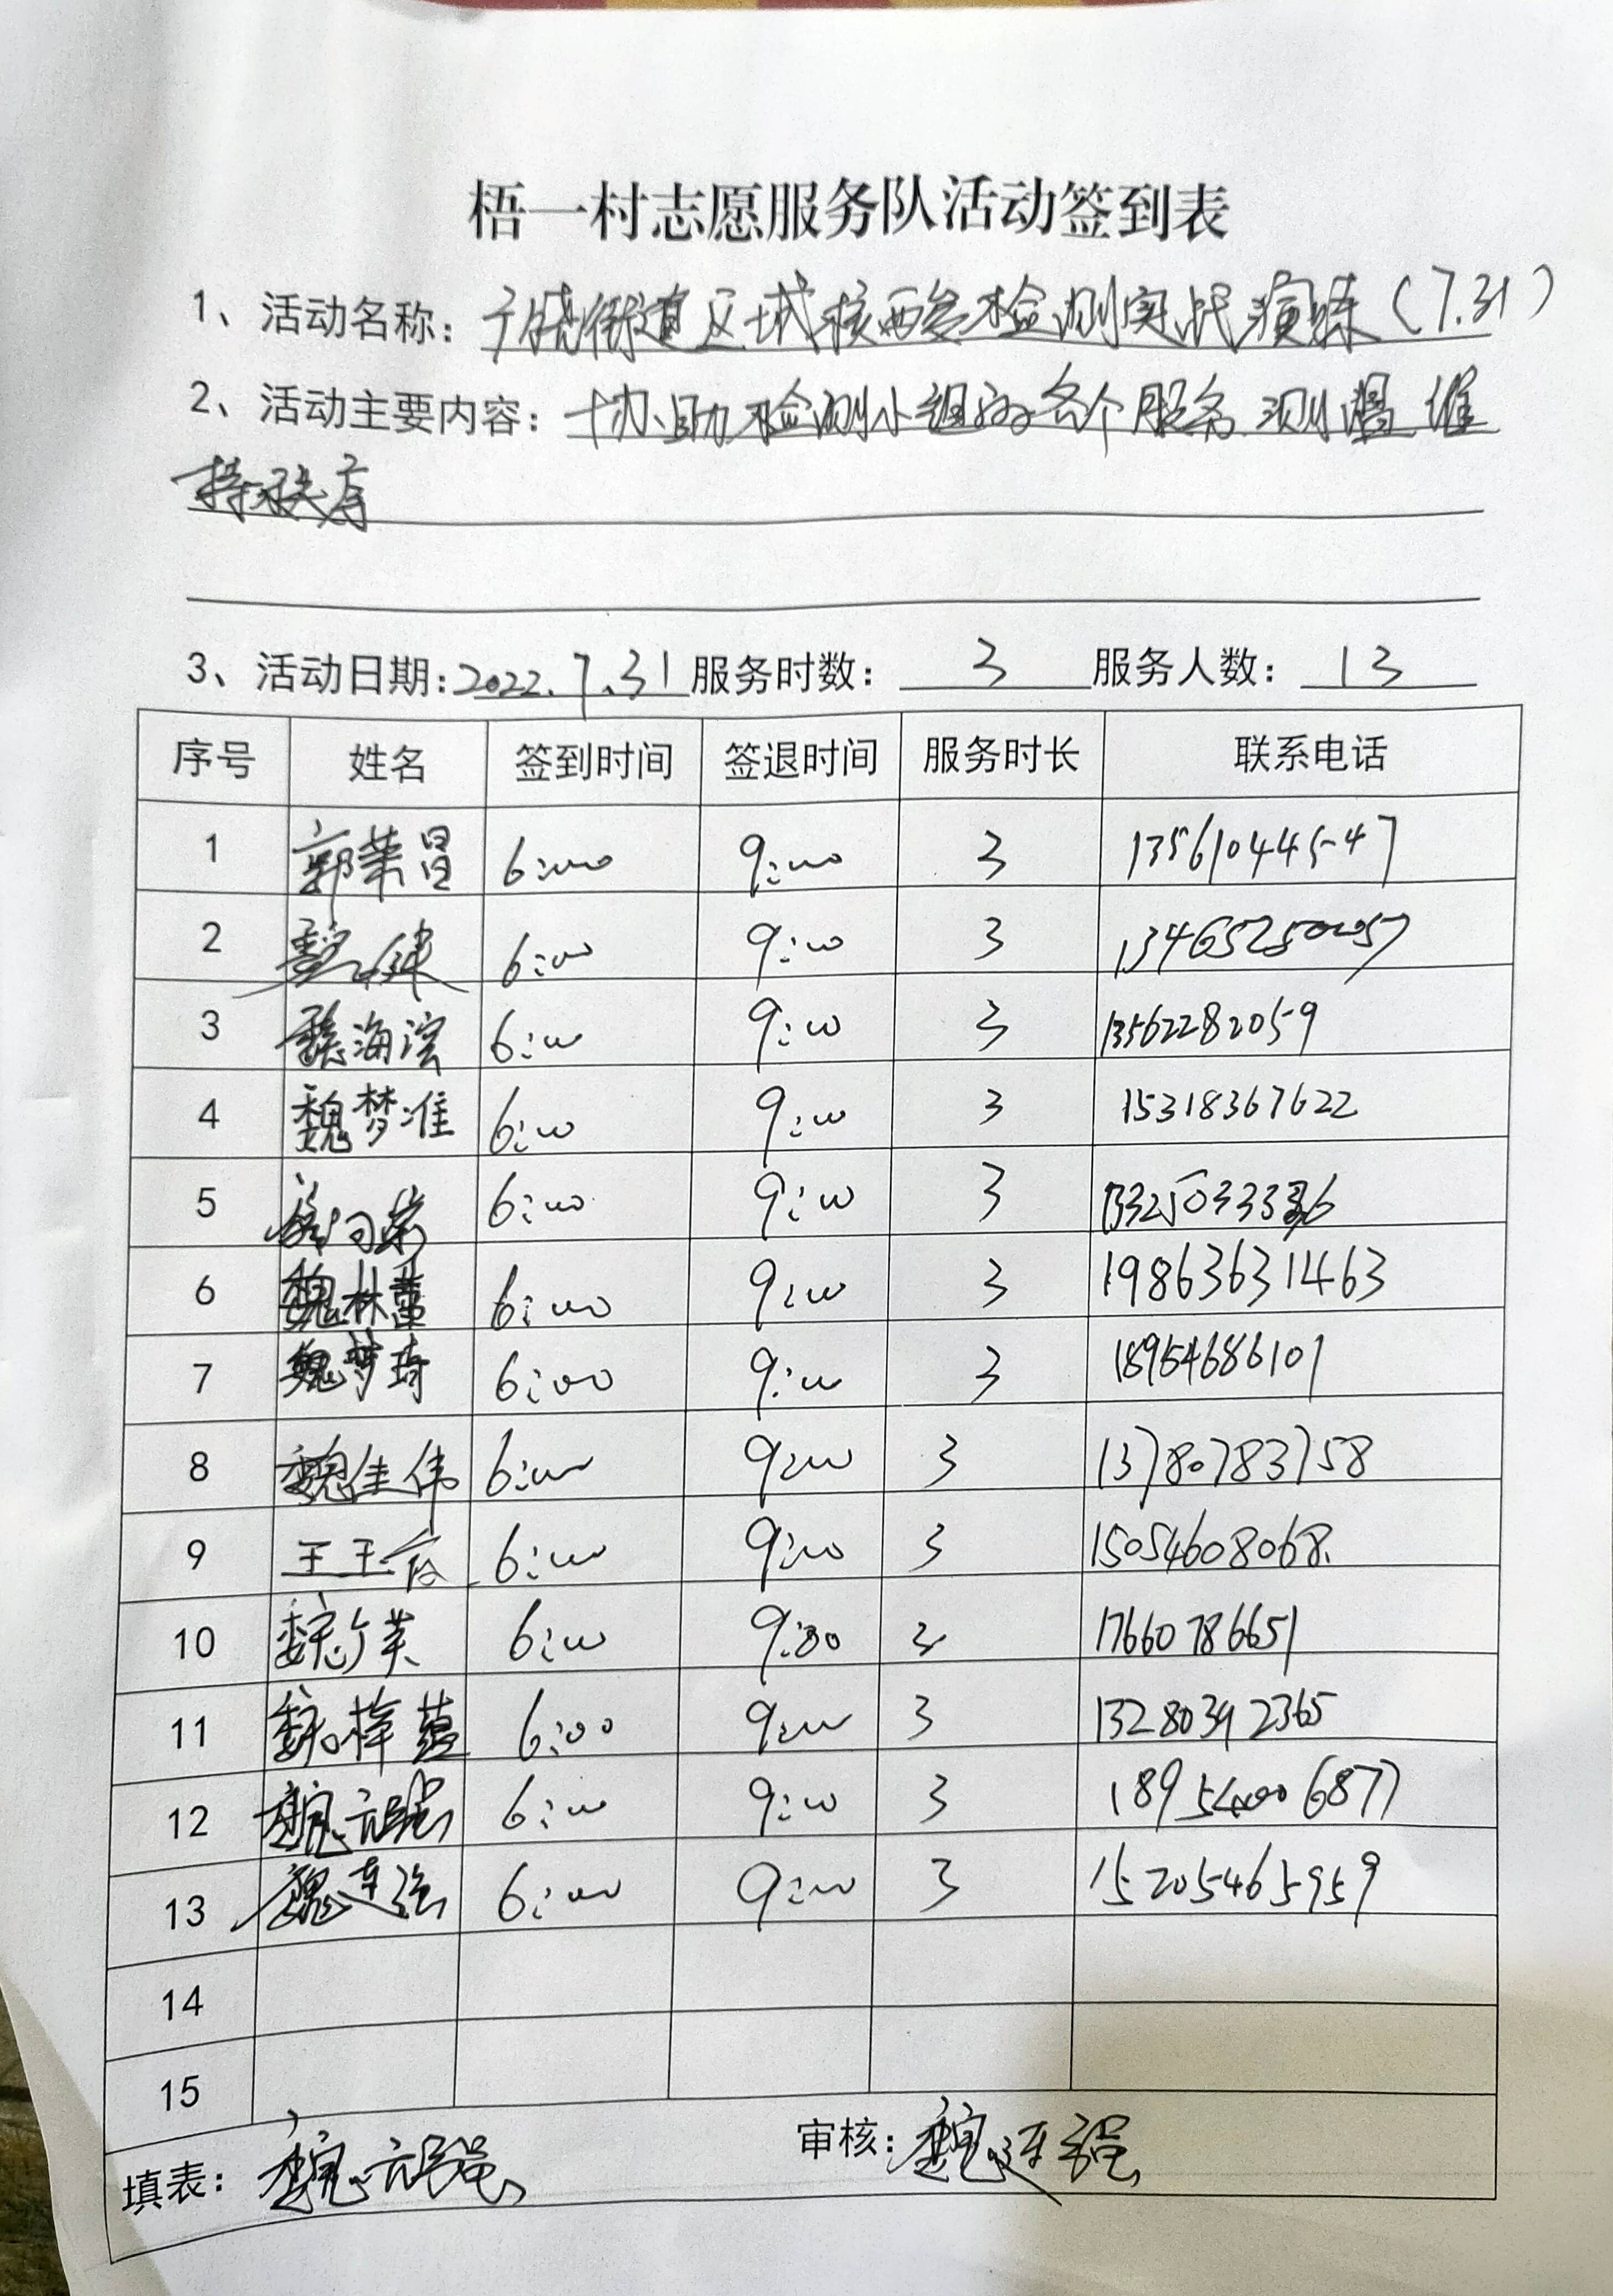 梧一村志愿服务队活动签到表
1、活动名称: 广饶街道区域核酸检测实战演练(7.31)
2、活动主要内容: 协助检测小组的各个服务 测温 维
持秩序
3、活动日期: 2022.7.31 服务时数: 3 服务人数: 13
序号 姓名 签到时间 签退时间 服务时长 联系电话
1 郭荣昌 6:00 9:00 3 13561044547
2 魏健 6:00 9:00 3
3 魏海滨 6:00 9:00 3 13562282059
4 魏梦准 6:00 9:00 3 15318367622
5 6:00 9:00 3
6 魏林蕾 6:00 9:00 3 19863631463
7 魏梦琦 6:00 9:00 3 18954686101
8 魏佳伟 6:00 9:00 3 13780783758
9 王玉 6:00 9:00 3 15054608068
10 魏 6:00 9:00 3 17660786651
11 魏梓蕴 6:00 9:00 3 13280342365
12 魏 6:00 9:00 3 18954006877
13 魏连强 6:00 9:00 3 15205465959
14
15
填表: 魏 审核: 魏连强